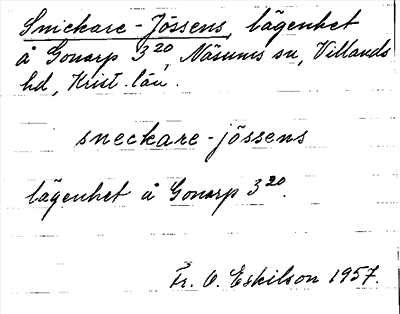 Snickare-Jössens, lägenhet
å Gonarp 3²⁰, Näsums sn, Villands
hd, Krist. län.
sneckare-jössens
lägenhet å Gonarp 3²⁰.
Fr. O. Eskilson 1957.